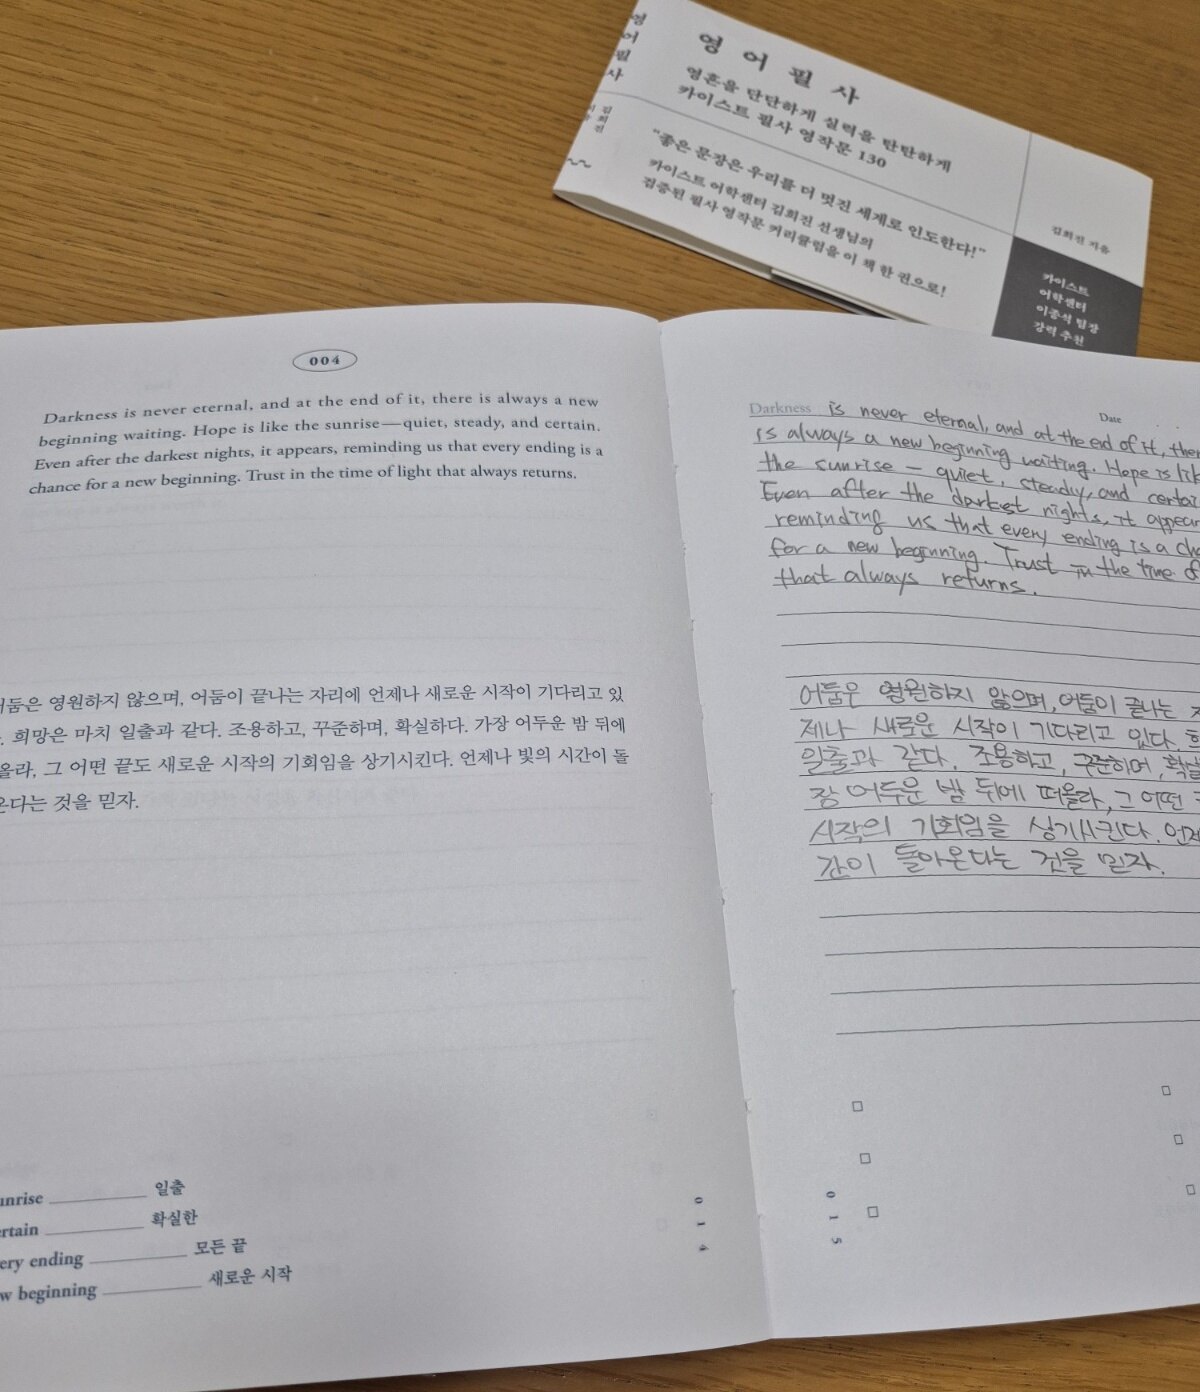 영어필사
김희진
영 어 필 사
영혼을 단단하게 실력을 탄탄하게
카이스트 필사 영작문 130
"좋은 문장은 우리를 더 멋진 세계로 인도한다!"
카이스트 어학센터 김희진 선생님의
검증된 필사 영작문 커리큘럼을 이 책 한 권으로!
김희진 지음
카이스트
어학센터
이종석 팀장
강력 추천
004
Darkness is never eternal, and at the end of it, there is always a new
beginning waiting. Hope is like the sunrise—quiet, steady, and certain.
Even after the darkest nights, it appears, reminding us that every ending is a
chance for a new beginning. Trust in the time of light that always returns.
어둠은 영원하지 않으며, 어둠이 끝나는 자리에 언제나 새로운 시작이 기다리고 있
. 희망은 마치 일출과 같다. 조용하고, 꾸준하며, 확실하다. 가장 어두운 밤 뒤에
올라, 그 어떤 끝도 새로운 시작의 기회임을 상기시킨다. 언제나 빛의 시간이 돌
온다는 것을 믿자.
unrise 일출
ertain 확실한
ery ending 모든 끝
w beginning 새로운 시작
014
Date
Darkness is never eternal, and at the end of it, ther
is always a new beginning waiting. Hope is lik
the sunrise — quiet, steadiy, and certai
Even after the darkest nights, it appear
reminding us that every ending is a cha
for a new beginning. Trust in the time of
that always returns.
어둠은 영원하지 않으며, 어둠이 끝나는
제나 새로운 시작이 기다리고 있다.
일출과 같다. 조용하고, 꾸준하며, 확실
장 어두운 밤 뒤에 떠올라, 그 어떤
시작의 기회임을 상기시킨다. 언제
간이 돌아온다는 것을 믿자.
015